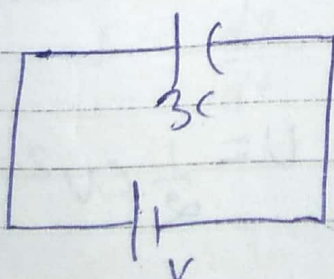 3C
V